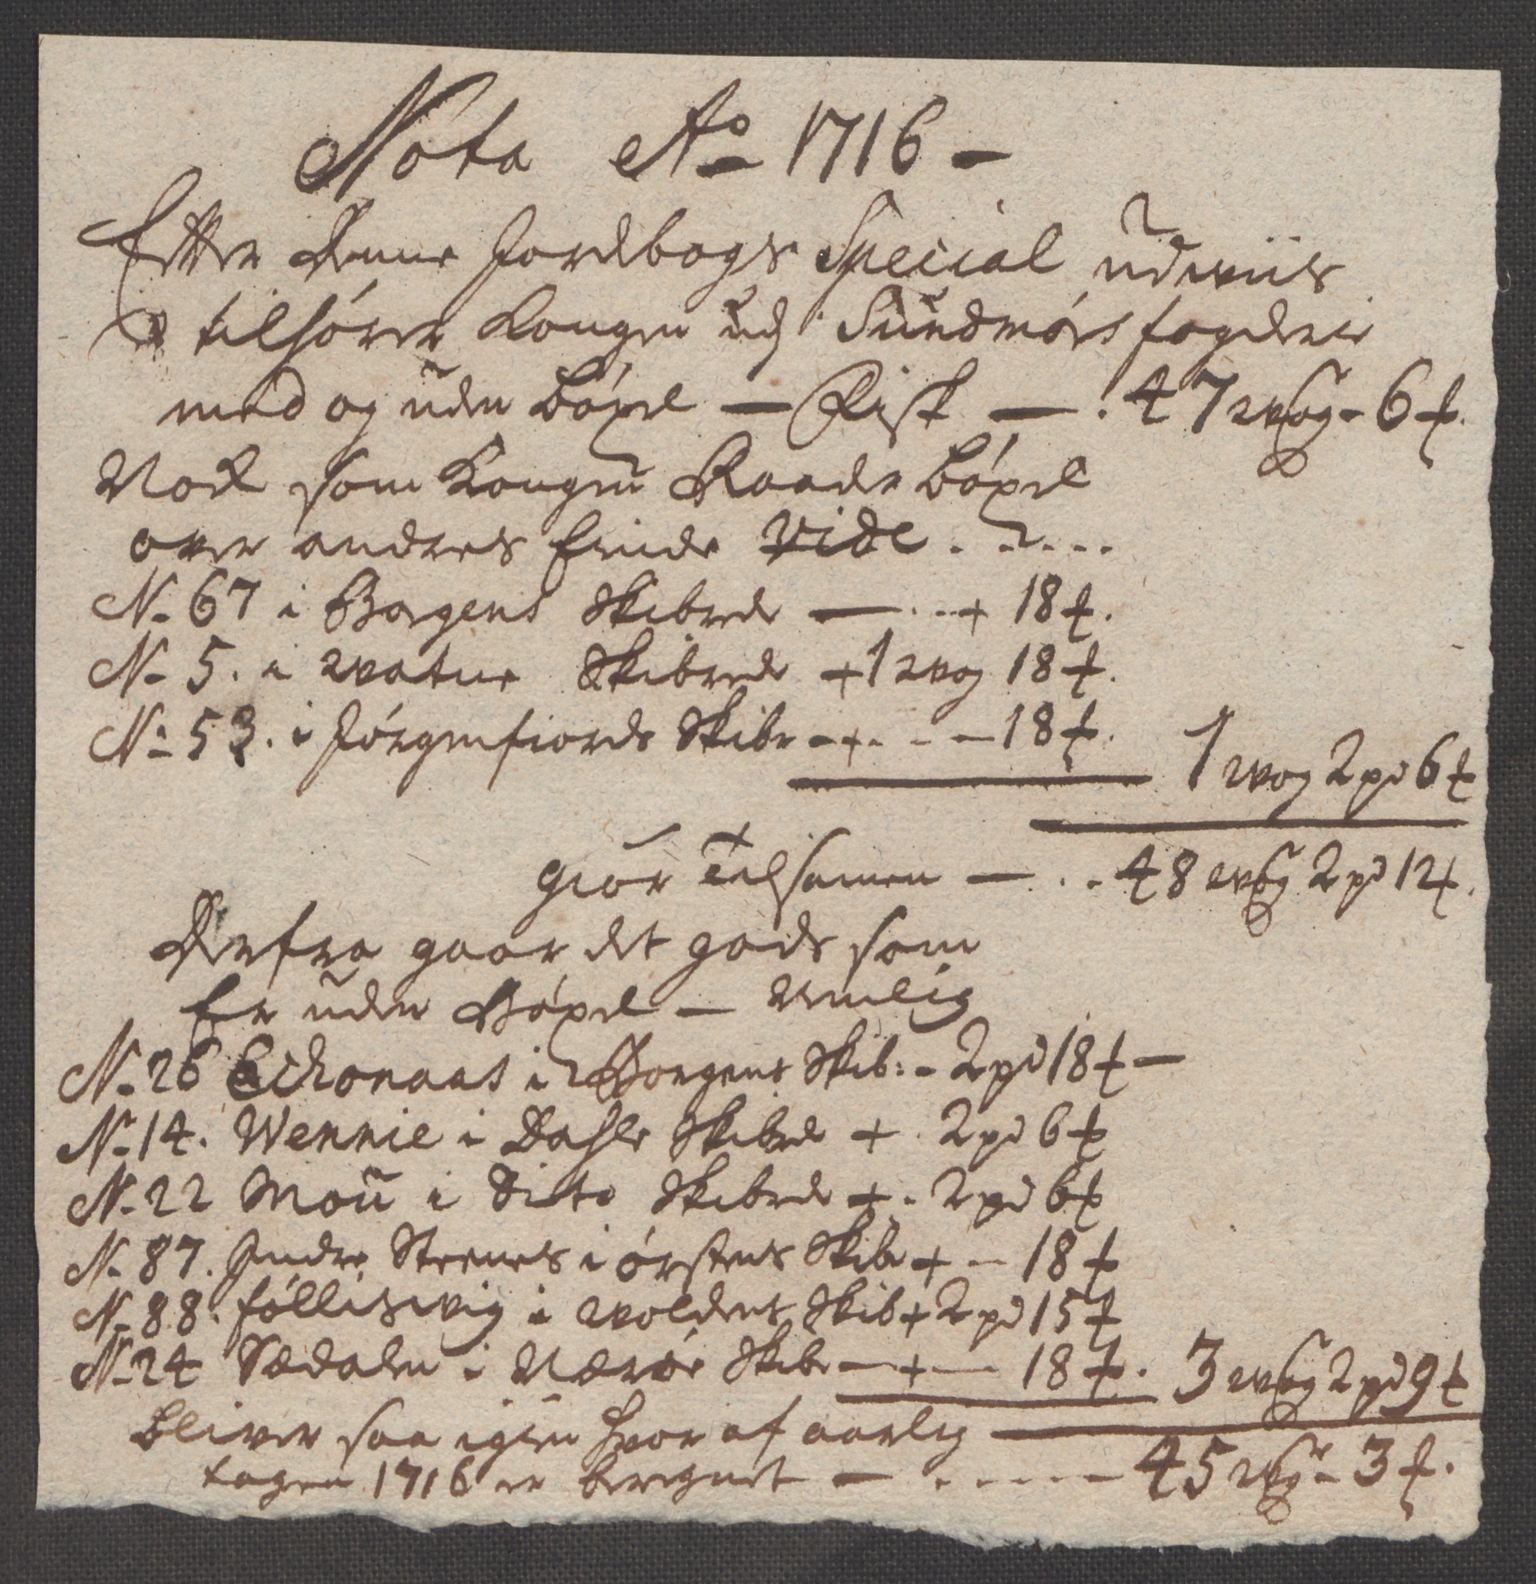 Nota Ao 1716 -
Efter denne Jordbogs Special udwiis
tilhörer Kongen udj Sundmörs fogderie
med og uden böxel — Fisk — . 47 wog - 6 ℔.
Nock som Kongen Raader böxel
over andres Eiende Vide . . . . .
No 67 i Borgens Skibrede — . . + 18 ℔.
No 5. i watne Skibrede + 1 wog 18 ℔.
No 53. i Jörgenfiords Skibr - + . - - 18 ℔. 1 wog 2 pd 6 ℔
giör Tilsamen — . . 48 wog 2 pd 12 ℔.
Derfra gaar det gods som
Er uden Böxel — Nemlig
No 26 Echonaas i Borgens Skib: - 2 pd 18 ℔ —
No 14. Wennie i Dahls Skibrede + . 2 pd 6 ℔
No 22 Mou i Ditto Skibrede + . 2 pd 6 ℔
No 87. Indre Steenes i örstens Skibr + - 18 ℔
No 88. fölliswig i woldens Skib + 2 pd 15 ℔
No 24 Sædalen i Nærøe Skibr — + — 18 ℔. 3 wog 2 pd 9 ℔
bliver saa igien hvor af aarlig
tagen 1716 er beregnet — . - - - - - 45 wog - 3 ℔.